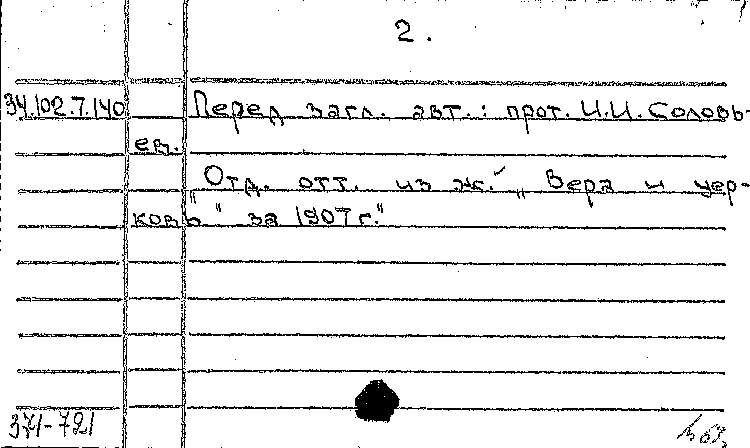 2.
34.102.7.140 Перед загл. авт.: прот. И.И. Соловь-
ев.
"Отд. отт. из ж. „Вера и цер-
ковь" за 1907 г."
371-721